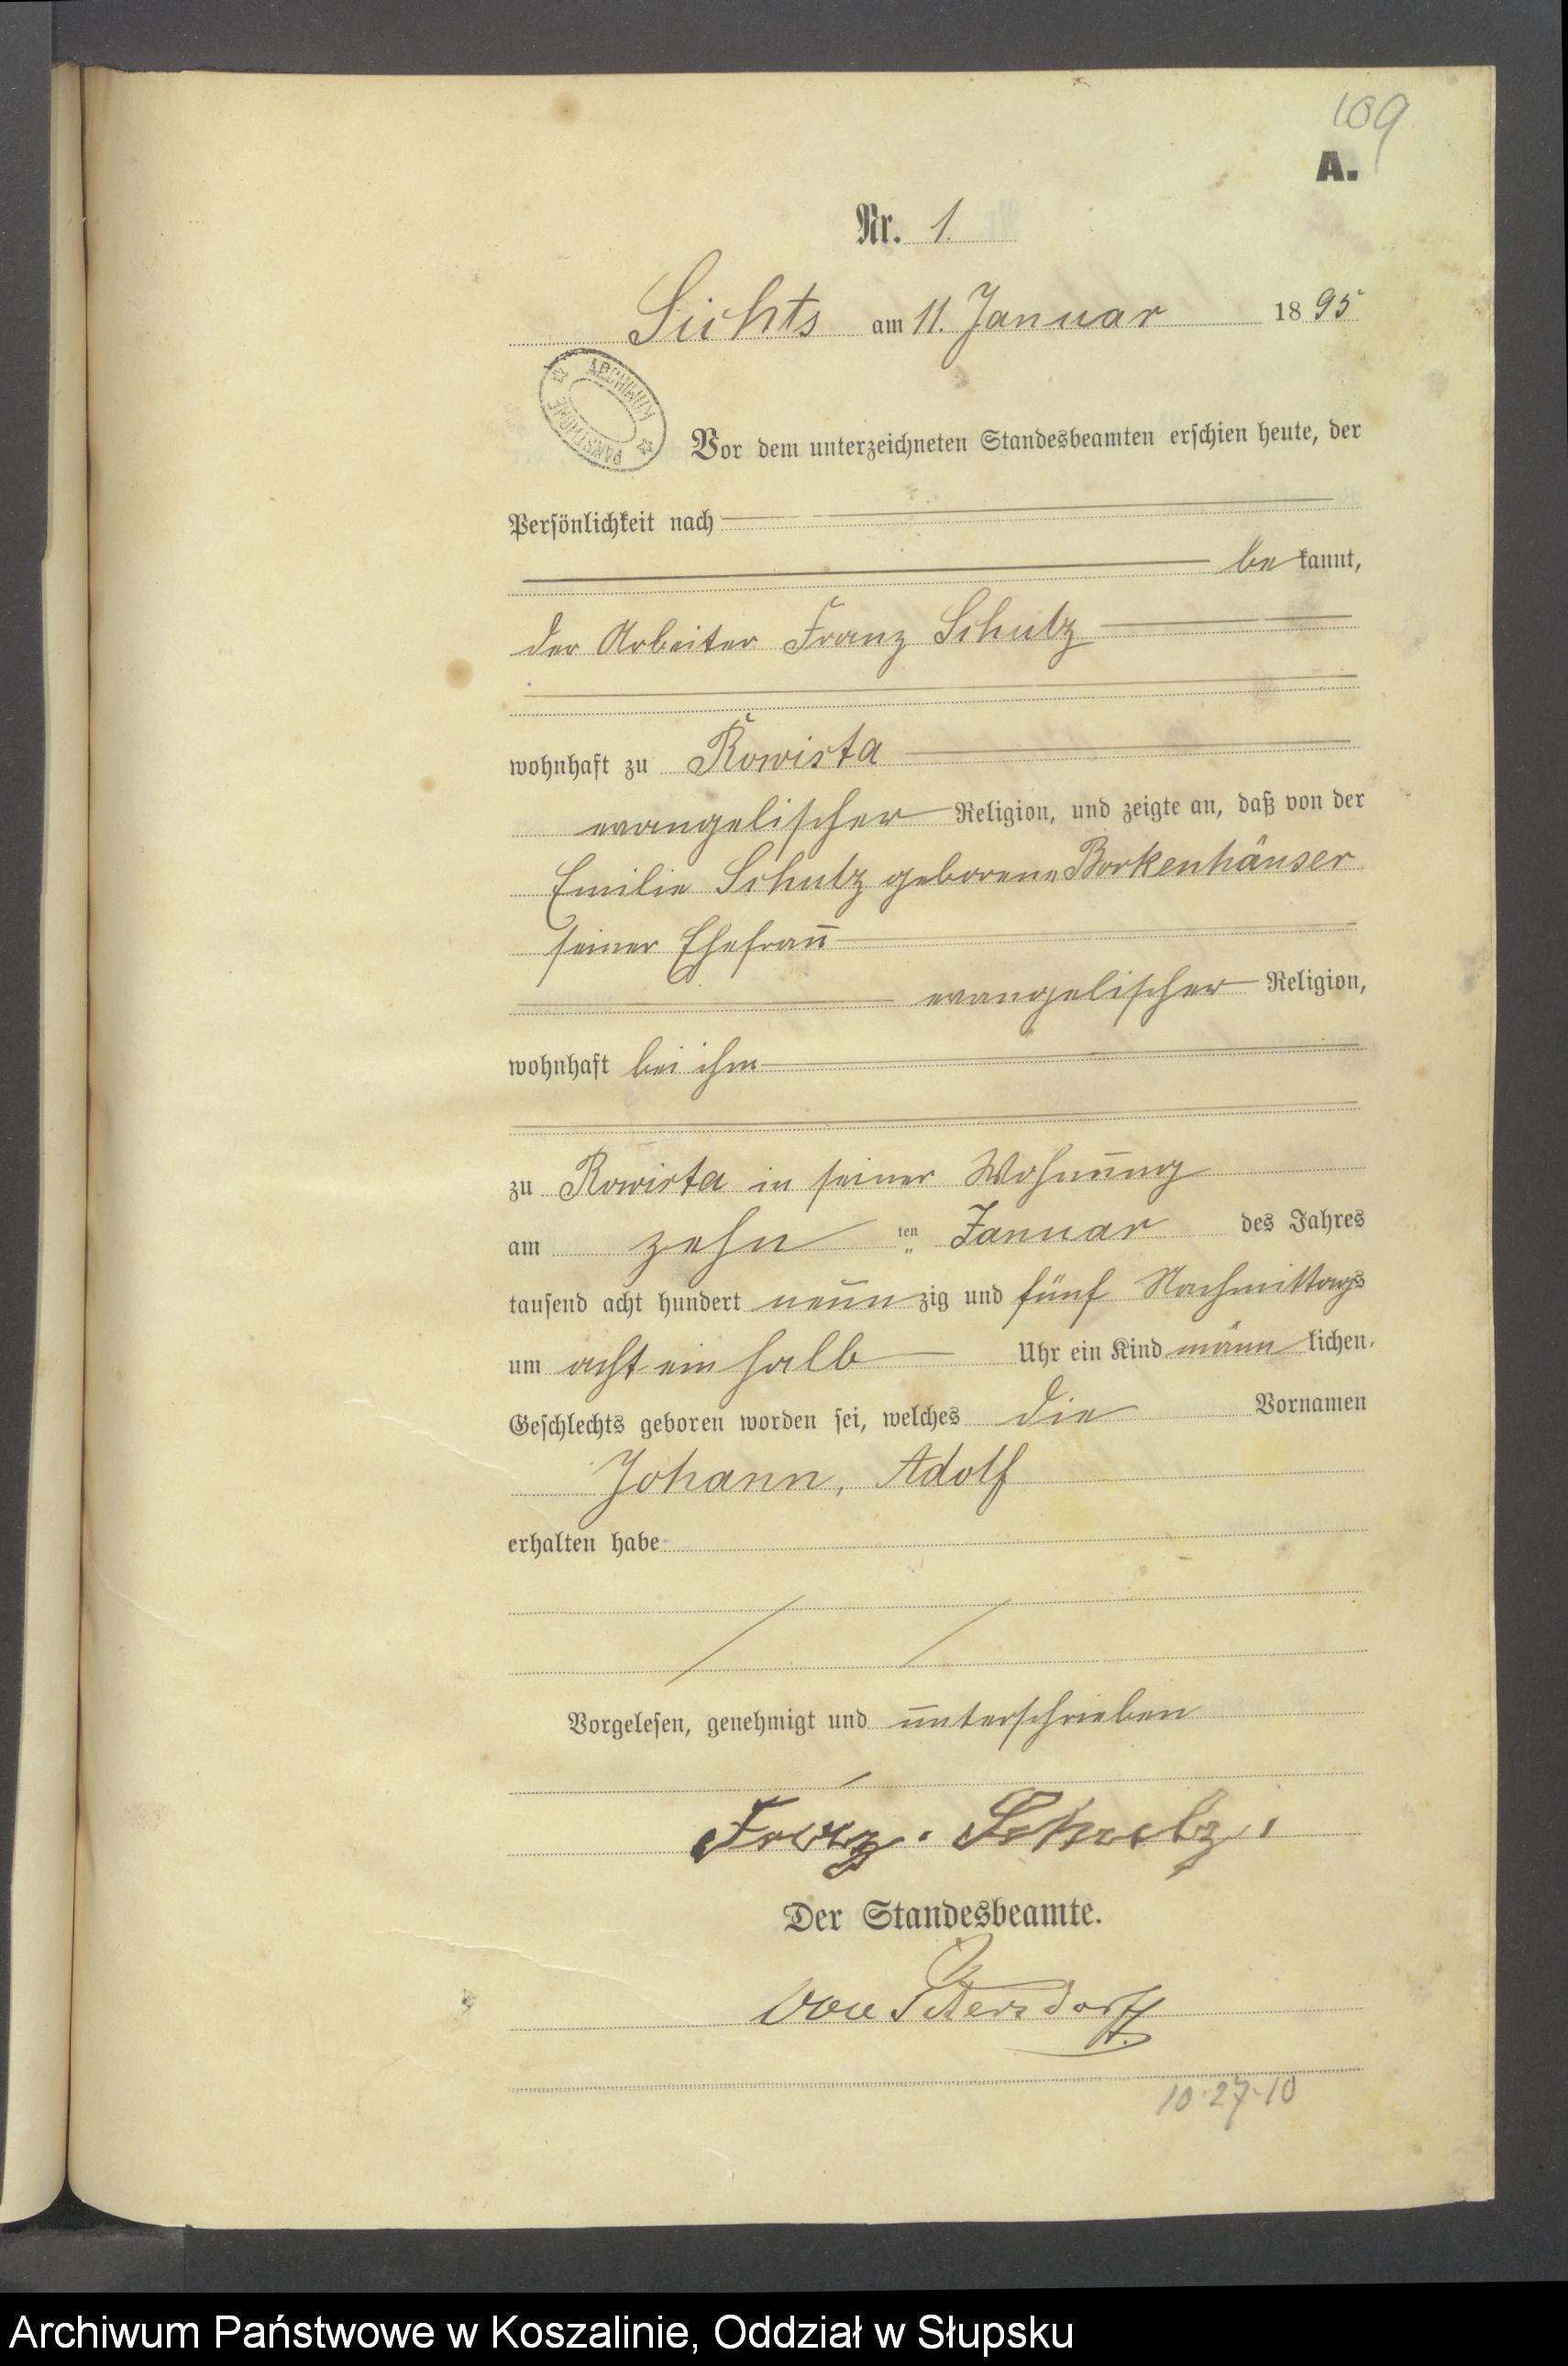 109
A.
Nr. 1.
Sichts am 11. Januar 1895
ARCHIWUM PAŃSTWOWE
Vor dem unterzeichneten Standesbeamten erschien heute, der
Persönlichkeit nach
be kannt,
der Arbeiter Franz Schulz
wohnhaft zu Rowista
evangelischer Religion, und zeigte an, daß von der
Emilie Schulz geborene Borkenhäuser
seiner Ehefrau
evangelischer Religion,
wohnhaft bei ihm
zu Rowista in seiner Wohnung
am zehn ten Januar des Jahres
tausend acht hundert neun zig und fünf Nachmittags
um acht ein halb Uhr ein Kind männ lichen
Geschlechts geboren worden sei, welches die Vornamen
Johann, Adolf
erhalten habe
Vorgelesen, genehmigt und unterschrieben
Schulz
Der Standesbeamte.
von Petersdorff.
10.27.10
Archiwum Państwowe w Koszalinie, Oddział w Słupsku